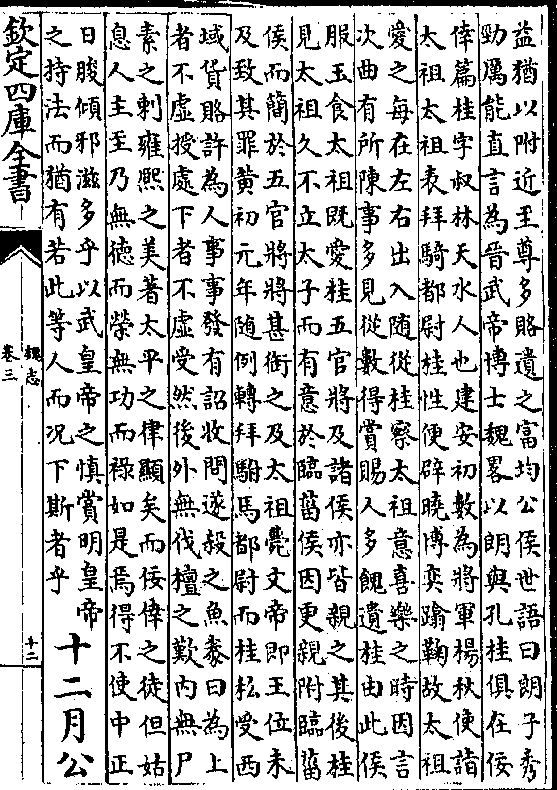 益猶以附近至尊多賂遺之富均公侯世語曰朗子秀
勁厲能直言為晉武帝博士魏畧以朗與孔桂俱在佞
倖篇桂字叔林天水人也建安初數為將軍楊秋使詣
太祖太祖表拜騎都尉桂性便辟曉博奕蹹鞠故太祖
愛之每在左右出入隨從桂察太祖意喜樂之時因言
次曲有所陳事多見從數得賞賜人多餽遺桂由此侯
服玉食太祖既愛桂五官將及諸侯亦皆親之其後桂
見太祖久不立太子而有意於臨菑侯因更親附臨菑
侯而簡於五官將將甚銜之及太祖薨文帝即王位未
及致其罪黄初元年隨例轉拜駙馬都尉而桂私受西
域貨賂許為人事事發有詔收問遂殺之魚豢曰為上
者不虛授處下者不虛受然後外無伐檀之歎内無尸
素之刺雍熙之美著太平之律顯矣而佞倖之徒但姑
息人主至乃無德而榮無功而祿如是焉得不使中正
日朘傾邪滋多乎以武皇帝之慎賞明皇帝
之持法而猶有若此等人而况下斯者乎
十二月公
欽定四庫全書
魏志
卷三
十二